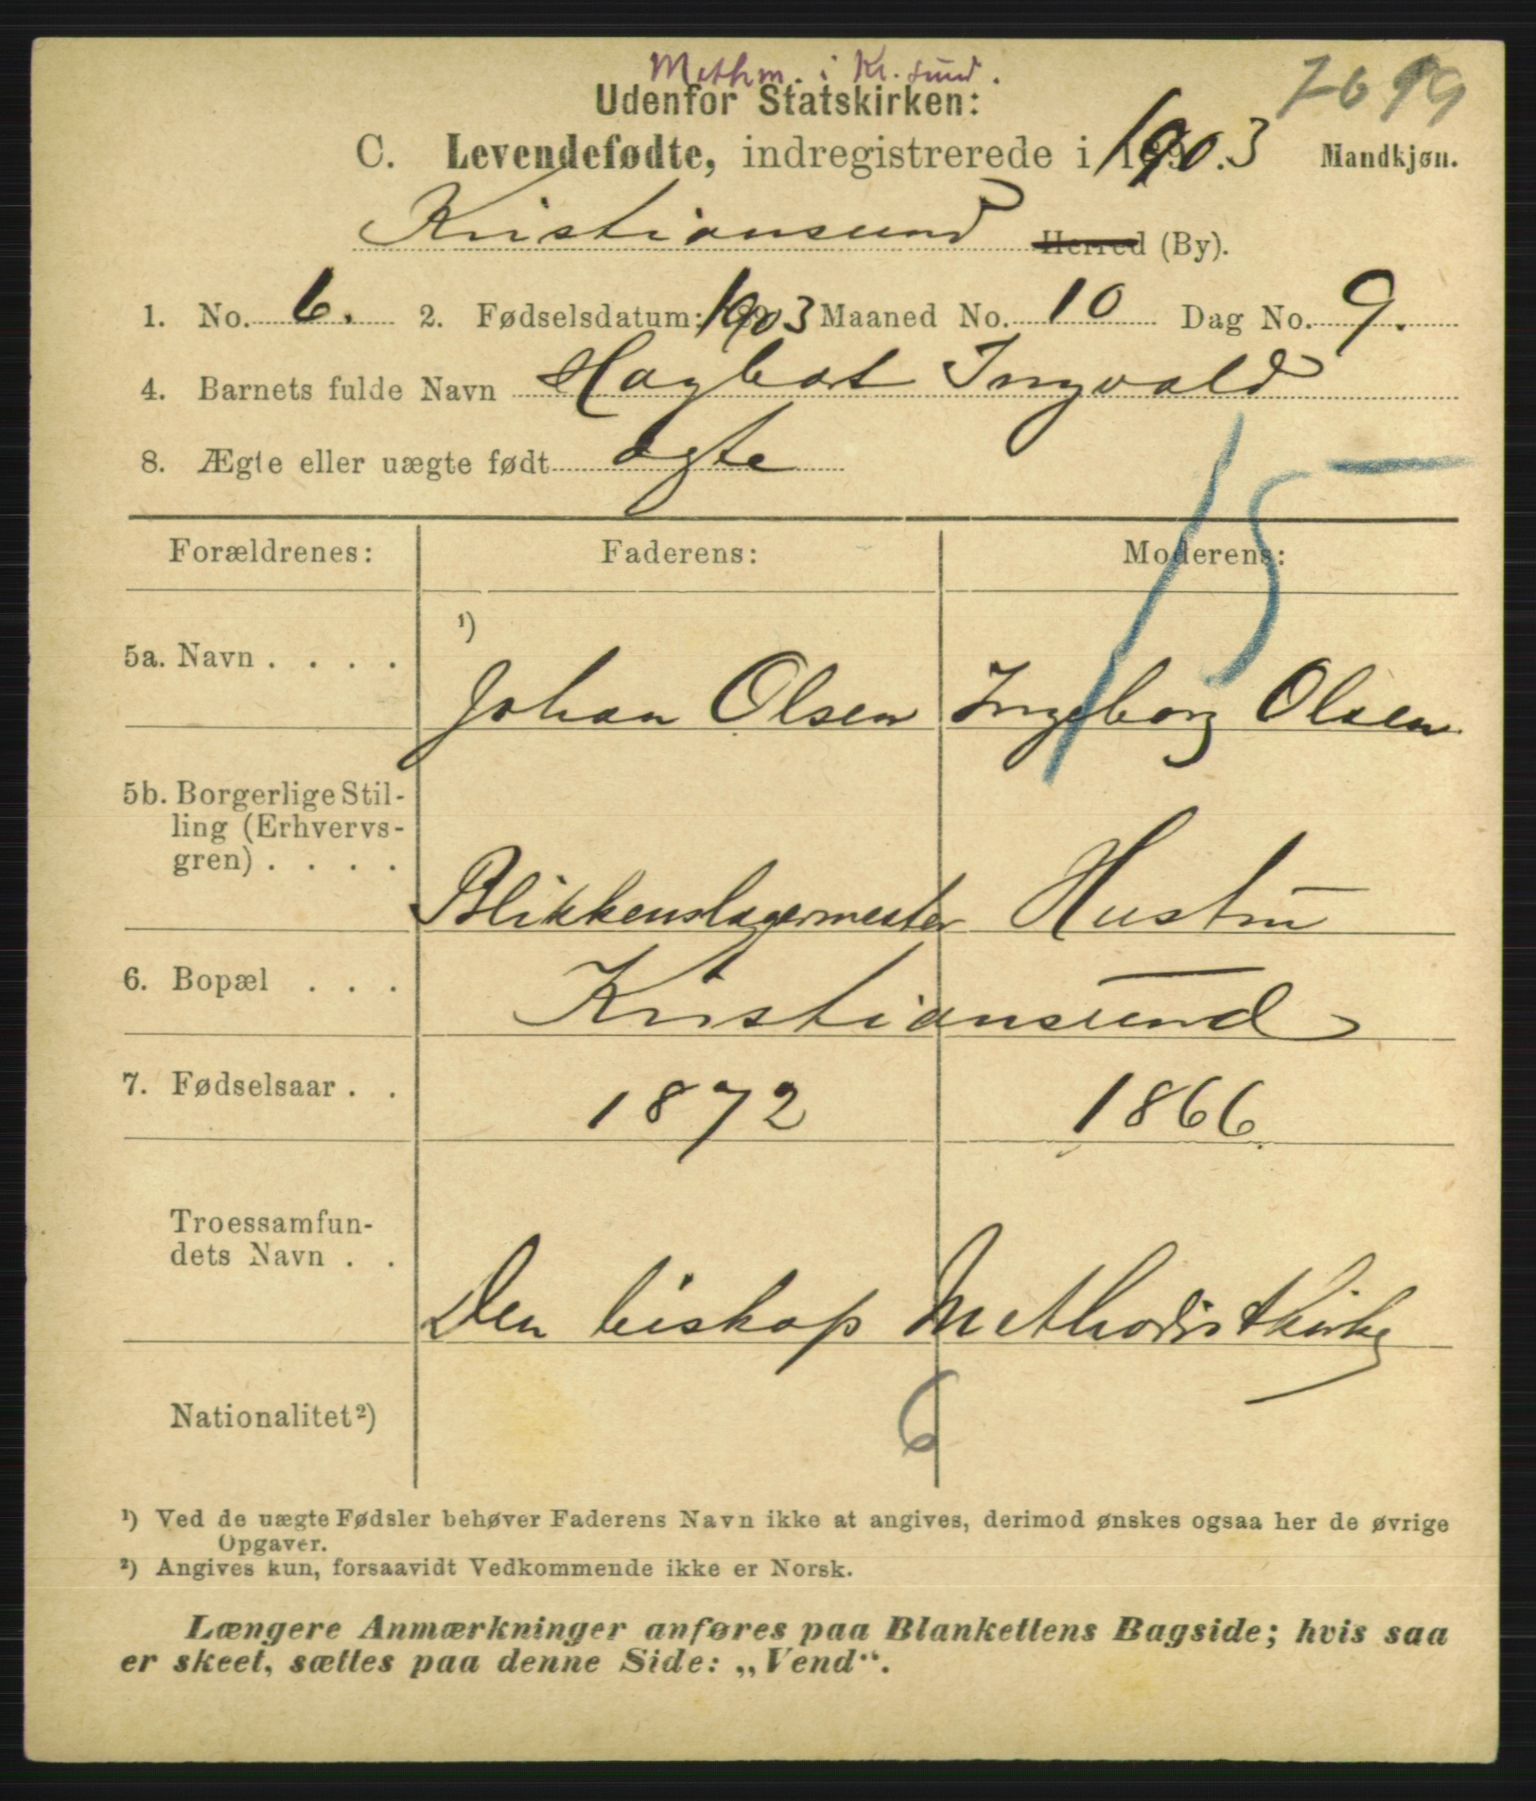 Methm. i Kr.sund.
7699
Udenfor Statskirken:
C. Levendefødte, indregistrerede i 1903 Mandkjøn.
Kristiansund Herred (By).
1. No. 6. 2. Fødselsdatum: 1903 Maaned No. 10 Dag No. 9.
4. Barnets fulde Navn Hagbart Ingvald
8. Ægte eller uægte født ægte
15
Forældrenes: Faderens: Moderens:
5a. Navn . . . . ¹) Johan Olsen Ingeborg Olsen
5b. Borgerlige Stil-
ling (Erhvervs-
gren) . . . . Blikkenslagermester Hustru
6. Bopæl . . . Kristiansund
7. Fødselsaar . . 1872 1866
Troessamfun-
dets Navn . . Den biskop Methodistkirke
Nationalitet ²) 6
¹) Ved de uægte Fødsler behøver Faderens Navn ikke at angives, derimod ønskes ogsaa her de øvrige
Opgaver.
²) Angives kun, forsaavidt Vedkommende ikke er Norsk.
Længere Anmærkninger anføres paa Blankettens Bagside; hvis saa
er skeet, sættes paa denne Side: „Vend“.